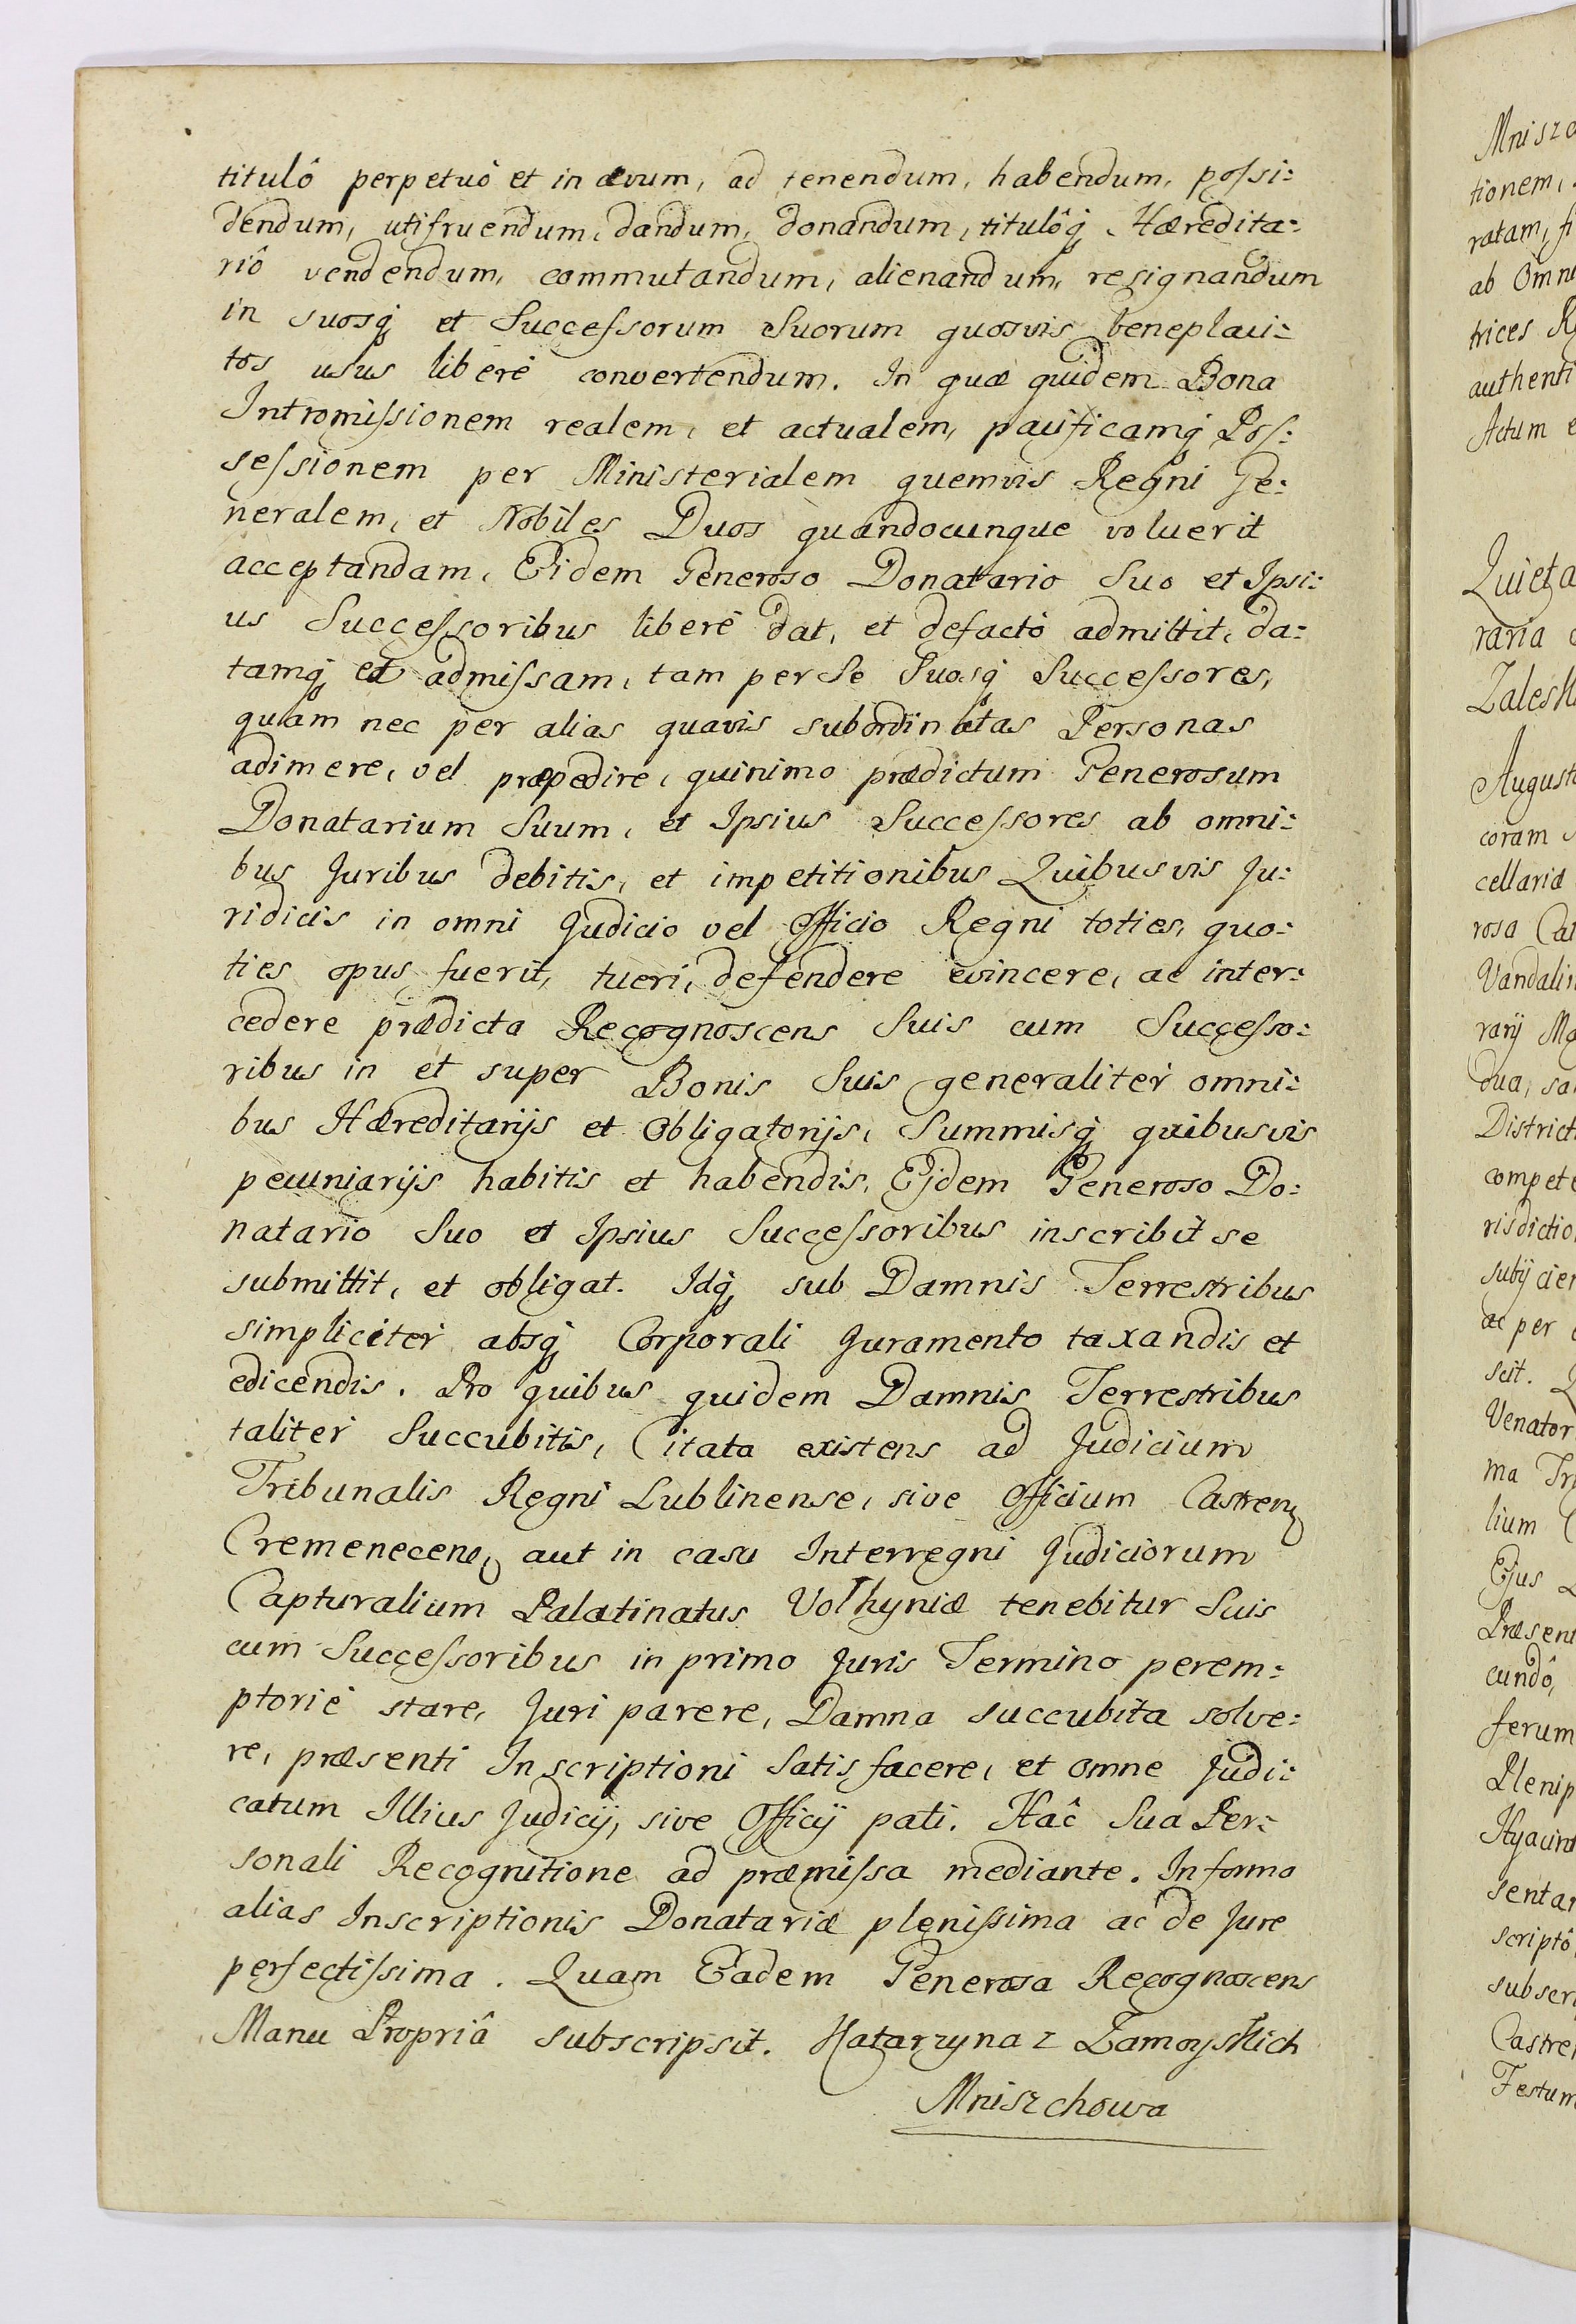 titulô perpetuô et in ævum, ad tenendum, habendum, possi:
dendum, utifruendum, dandum, donandum, titulôq; Hæredita:
riô vendendum, commutandum, alienandum, resignandum
in suosq; et Successorum Suorum quosvis beneplaci:
tos usus liberè convertendum. In quæ quidem Bona
Intromissionem realem, et actualem, pacificamq; Pos:
sessionem per Ministerialem quemvis Regni Ge:
neralem, et Nobiles Duos quandocunque voluerit
acceptandam, Eidem Generoso Donatario Suo et Ipsi:
us Successoribus liberè dat, et defactò admittit, da:
tamq; et admissam, tam per Se Suosq; Successores,
quàm nec per alias quavis subordinatas Personas
adimere, vel præpedire, quinimo prædictum Generosum
Donatarium Suum, et Ipsius Successores ab omni:
bus Juribus debitis, et impetitionibus Quibusvis Ju:
ridicis in omni Judicio vel Officio Regni toties, quo:
ties opus fuerit, tueri, defendere evincere, ac inter:
cedere prædicta Recognoscens Suis cum Successo:
ribus in et super Bonis Suis generaliter omni:
bus Hæreditarijs et Obligatorijs, Summisq; quibusvis
pecuniarijs habitis et habendis, Ejdem Generoso Do:
natario Suo et Ipsius Successoribus inscribit se
submittit, et obligat. Idq; sub Damnis Terrestribus
simpliciter absq; Corporali Juramento taxandis et
edicendis. Pro quibus quidem Damnis Terrestribus
taliter Succubitis, Citata existens ad Judicium
Tribunalis Regni Lublinense, sive Officium Castren;
Cremenecen; aut in casu Interregni Judiciorum
Capturalium Palatinatus Volhyniæ tenebitur Suis
cum Successoribus in primo Juris Termino perem:
ptoriè stare, Juri parere, Damna succubita solve:
re, præsenti Inscriptioni Satisfacere, et omne Judi:
catum Illius Judicij, sive Officij pati. Hac Sua Per:
sonali Recognitione ad præmissa mediante. In forma
alias Inscriptionis Donatariæ plenissima ac de Jure
perfectissima. Quam Eadem Generosa Recognoscens
Manu Propriâ subscripsit. Katarzyna z Zamoyskich
Mniszchowa
tionem,
ratam,
ab Omni
trices
authenti
Actum
Quieta
raria
Zalesk
August
coram
cellariæ
rosa
Vandalin
rarij
dua,
District
compet
risdictio
subijcien
ac per
scit.
Venator
ma
lium
Ejus
Præsent
cundô,
ferum
Plenip
Hyacint
sentar
scriptô
subscri
Castren
Festum